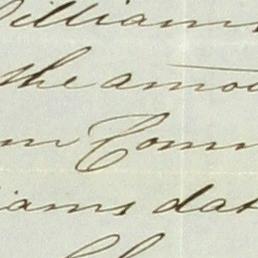 Williams
the amou
m Comm
iams dat